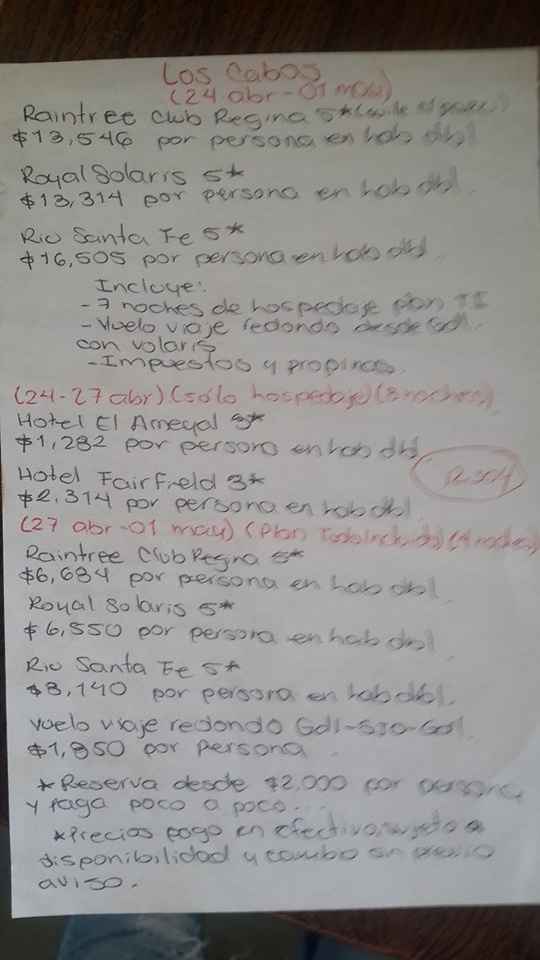 Los Cabos
(24 abr - 01 may)
Raintree Club Regina 5*
$13,546 por persona en hab dbl
Royal Solaris 5*
$13,314 por persona en hab dbl.
Riu Santa Fe 5*
$16,505 por persona en hab dbl.
Incluye:
- 7 noches de hospedaje plan TI
- Vuelo viaje redondo desde Gdl.
con volaris
- Impuestos y propinas.
(24-27 abr) (sólo hospedaje) (3 noches)
Hotel El Ameyal 3*
$1,282 por persona en hab dbl
Hotel Fairfield 3*
$2,314 por persona en hab dbl
(27 abr - 01 may) (Plan Todo Incluido) (4 noches)
Raintree Club Regina 5*
$6,684 por persona en hab dbl.
Royal Solaris 5*
$6,550 por persona en hab dbl
Riu Santa Fe 5*
$8,140 por persona en hab dbl.
Vuelo viaje redondo Gdl-SJD-Gdl.
$1,850 por persona
* Reserva desde $2,000 por persona
y paga poco a poco...
* Precios pago en efectivo, sujeto a
disponibilidad y cambio sin previo
aviso.